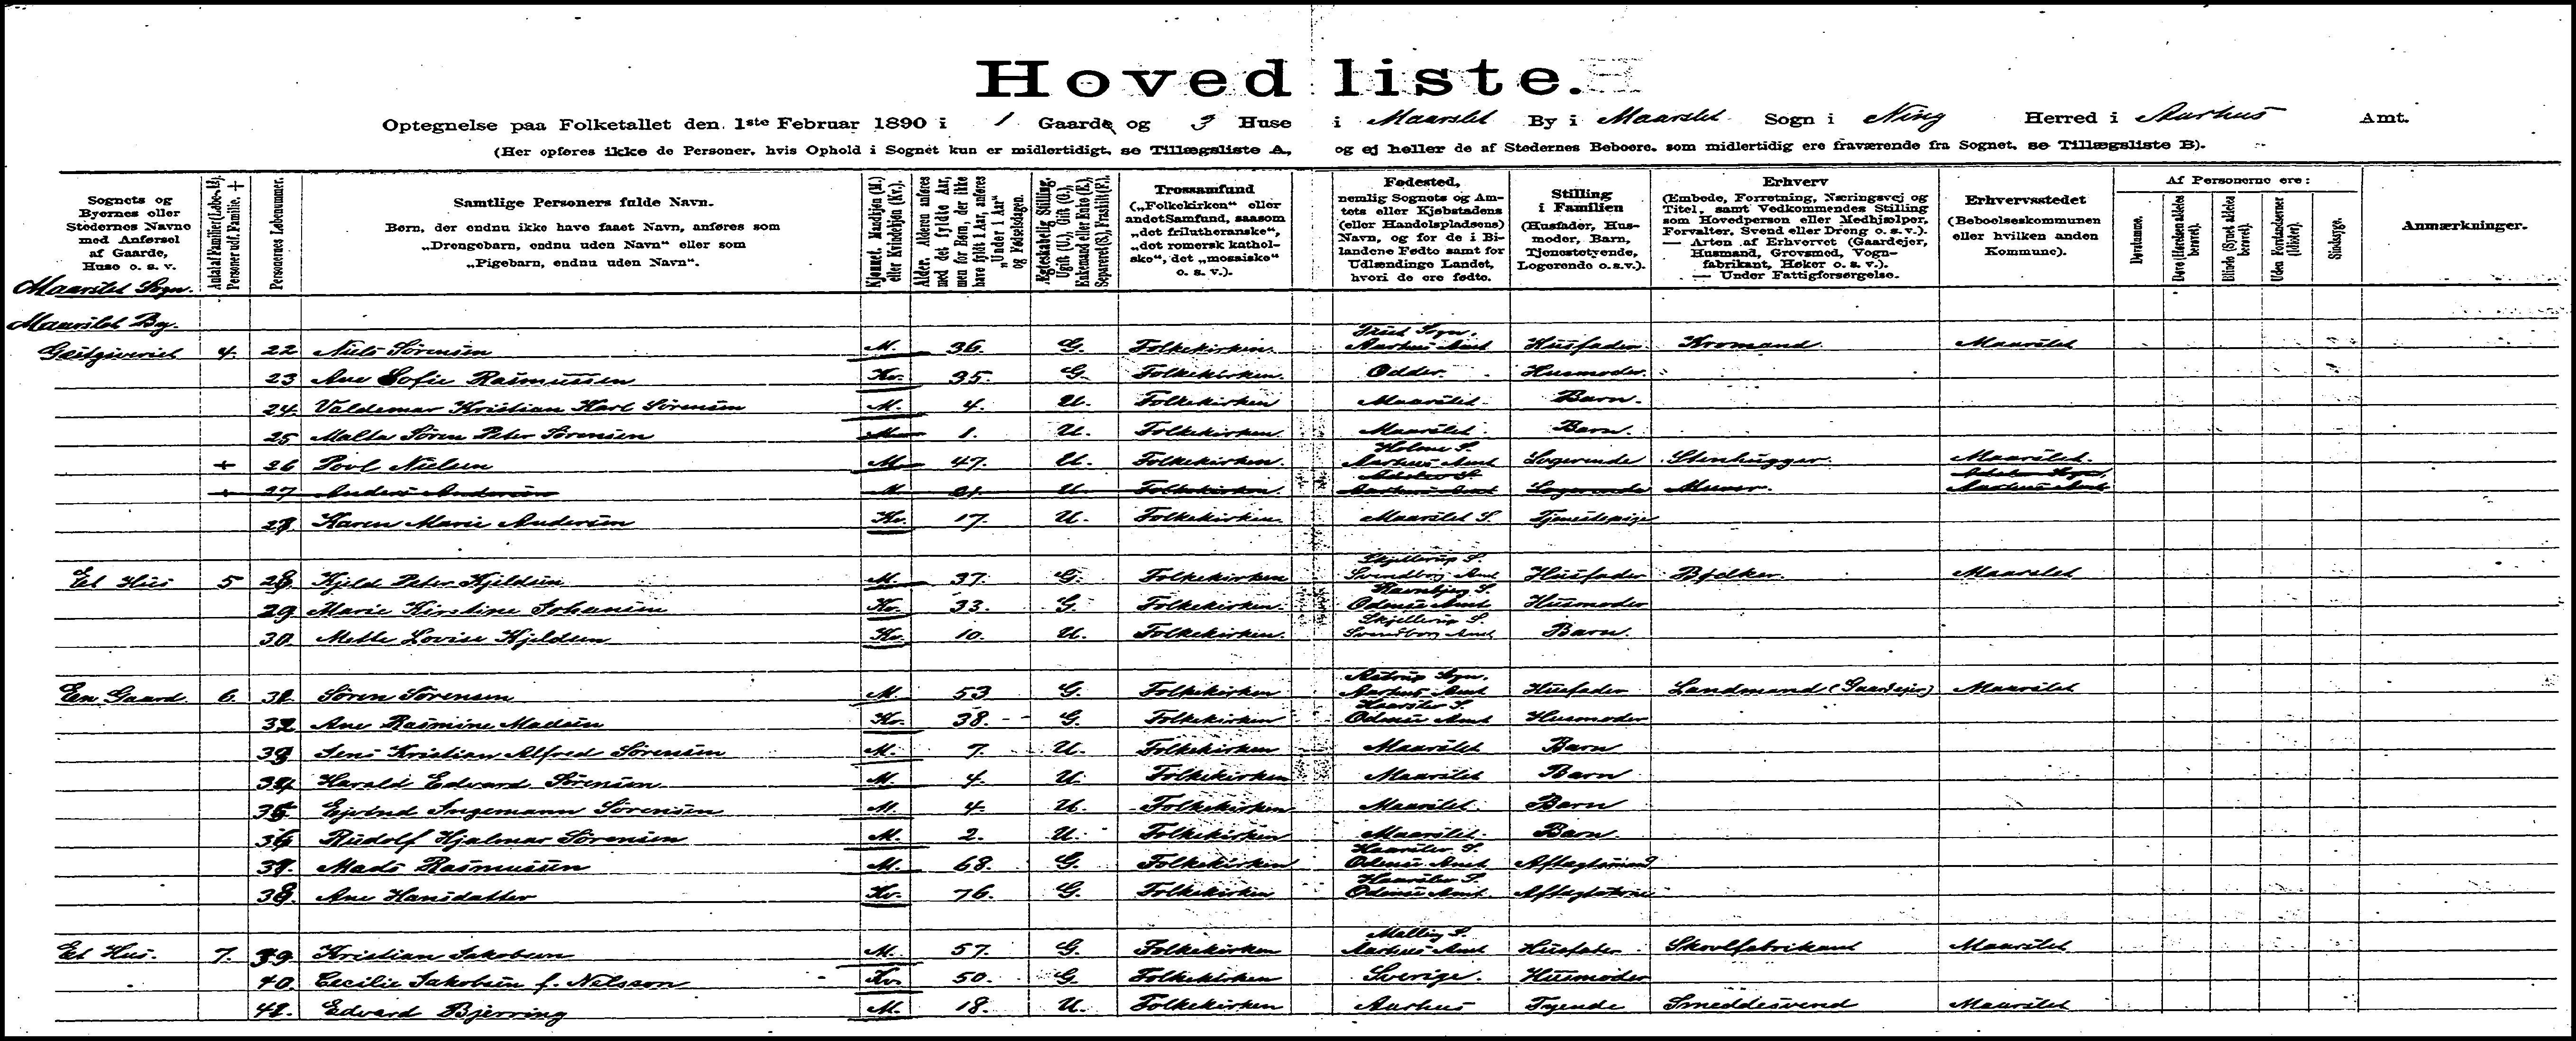 Hovedliste.
Optegnelse paa Folketallet den 1ste Februar 1890 i 1 Gaarde og 3 Huse i Maarslet By i Maarslet Sogn i Ning Herred i Aarhus Amt.
(Her opføres ikke de Personer, hvis Ophold i Sognet kun er midlertidigt, se Tillægsliste A, og ej heller de af Stedernes Beboere, som midlertidig ere fraværende fra Sognet, se Tillægsliste B).
Sognets og Byernes eller Stedernes Navne med Anførsel af Gaarde, Huse o. s. v.
Antal af Familier (Løbe-№). Personer udf. Familie. +
Personernes Løbenummer.
Samtlige Personers fulde Navn.
Børn, der endnu ikke have faaet Navn, anføres som „Drengebarn, endnu uden Navn“ eller som „Pigebarn, endnu uden Navn“.
Kjønnet. Mandkjøn (M.) eller Kvindekjøn (Kv.).
Alder. Alderen anføres med det fyldte Aar, men for Børn, der ikke have fyldt 1 Aar, anføres „Under 1 Aar“ og Fødselsdagen.
Ægteskabelig Stilling. Ugift (U.), Gift (G.), Enkemand eller Enke (E.), Separeret (S.), Fraskilt (F.).
Trossamfund („Folkekirken“ eller andet Samfund, saasom „det frilutheranske“, „det romersk katholske“, det „mosaiske“ o. s. v.).
Fødested, nemlig Sognets og Amtets eller Kjøbstadens (eller Handelspladsens) Navn, og for de i Bilandene Fødte samt for Udlændinge Landet, hvori de ere fødte.
Stilling i Familien (Husfader, Husmoder, Barn, Tjenestetyende, Logerende o.s.v.).
Erhverv (Embede, Forretning, Næringsvej og Titel, samt Vedkommendes Stilling som Hovedperson eller Medhjælper, Forvalter, Svend eller Dreng o. s. v.). — Arten af Erhvervet (Gaardejer, Husmand, Grovsmed, Vognfabrikant, Høker o. s. v.). — Under Fattigforsørgelse.
Erhvervsstedet (Beboelseskommunen eller hvilken anden Kommune).
Af Personerne ere:
Døvstumme.
Døve (Hørelsen aldeles berøvet).
Blinde (Synet aldeles berøvet).
Uden Forstandsevner (Idioter).
Sindssyge.
Anmærkninger.
Maarslet Sogn.
Maarslet By.
Gæstgiveriet 4. 22 Niels Sørensen M. 36. G. Folkekirken. Sogn. Aarhus Amt Husfader Kromand. Maarslet
23 Ane Sofie Rasmussen Kv. 35. G. Folkekirken. Odder. Husmoder.
24. Valdemar Kristian Karl Sørensen M. 4. U. Folkekirken Maarslet. Barn.
25 Malta Søren Peter Sørensen M. 1. U. Folkekirken Maarslet. Barn.
+ 26 Povl Nielsen M. 47. U. Folkekirken. Holme S. Aarhus Amt Logerende Stenhugger. Maarslet.
+ 27 Anders Andersen M. 21. U. Folkekirken. Aarhus Amt Logerende Murer. Sogn. Aarhus Amt
28 Karen Marie Andersen Kv. 17. U. Folkekirken. Maarslet S. Tjenestepige
Et Hus 5 28 Kjeld Peter Kjeldsen M. 37. G. Folkekirken Skjellerup S. Svendborg Amt Husfader Bødker. Maarslet
29 Marie Kirstine Johansen Kv. 33. G. Folkekirken. Ravnbjerg S. Odense Amt Husmoder
30. Mette Lovise Kjeldsen Kv. 10. U. Folkekirken. Skjellerup S. Svendborg Amt Barn.
En Gaard. 6. 31. Søren Sørensen M. 53 G. Folkekirken Astrup Sogn. Aarhus Amt Husfader Landmand (Gaardejer) Maarslet
32 Ane Rasmine Madsen Kv. 38. G. Folkekirken Haarslev S. Odense Amt Husmoder
33 Jens Kristian Alfred Sørensen M. 7. U. Folkekirken Maarslet Barn
34 Harald Edvard Sørensen M. 4. U. Folkekirken Maarslet Barn
35 Ejvind Ingemann Sørensen M. 4. U. Folkekirken Maarslet. Barn
36 Rudolf Hjalmar Sørensen M. 2. U. Folkekirken Maarslet. Barn
37. Mads Rasmussen M. 68. G. Folkekirken Haarslev S. Odense Amt Aftægtsmand
38. Ane Hansdatter Kv. 76. G. Folkekirken Haarslev S. Odense Amt. Aftægtskone
Et Hus. 7. 39. Kristian Jakobsen M. 57. G. Folkekirken Malling S. Aarhus Amt Husfader Skovlfabrikant Maarslet
40. Cecilie Jakobsen f. Nelsson Kv. 50. G. Folkekirken Sverige. Husmoder
41. Edvard Bjerring M. 18. U. Folkekirken Aarhus Tyende Smeddesvend Maarslet